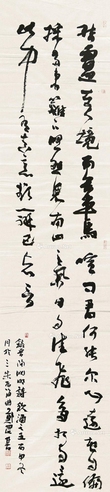 結廬在人境而無車馬喧問君何能爾心遠地自偏
採菊東籬下悠然見南山山氣日夕佳飛鳥相与還
此中有真意欲辨已忘言
陶淵明詩飲酒之五